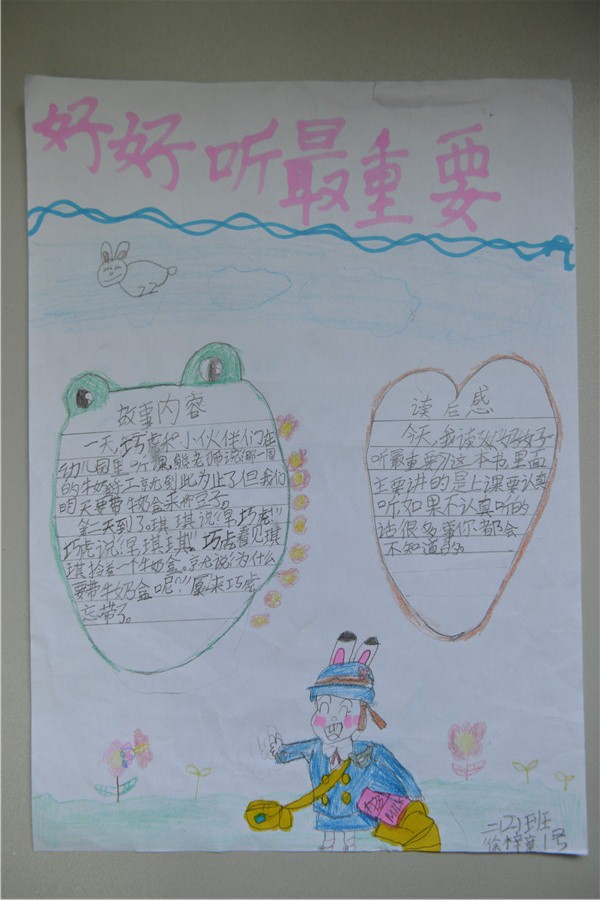 好好听最重要
故事内容
一天,巧虎和小伙伴们在
幼儿园里听课,熊老师说:那一周
的牛奶手工就到此为止了但我们
明天要带牛奶盒来种豆子。
第二天到了。琪琪说:“早巧虎!”
巧虎说:“早琪琪!”巧虎看见琪
琪拎着一个牛奶盒。就说:“为什么
要带牛奶盒呢?”原来巧虎
忘带了。
读后感
今天,我读了《好好
听最重要》这本书里面
主要讲的是上课要认真
听,如果不认真听的
话很多事你都会
不知道的。
牛奶
Milk
二(2)班
徐梓童1号